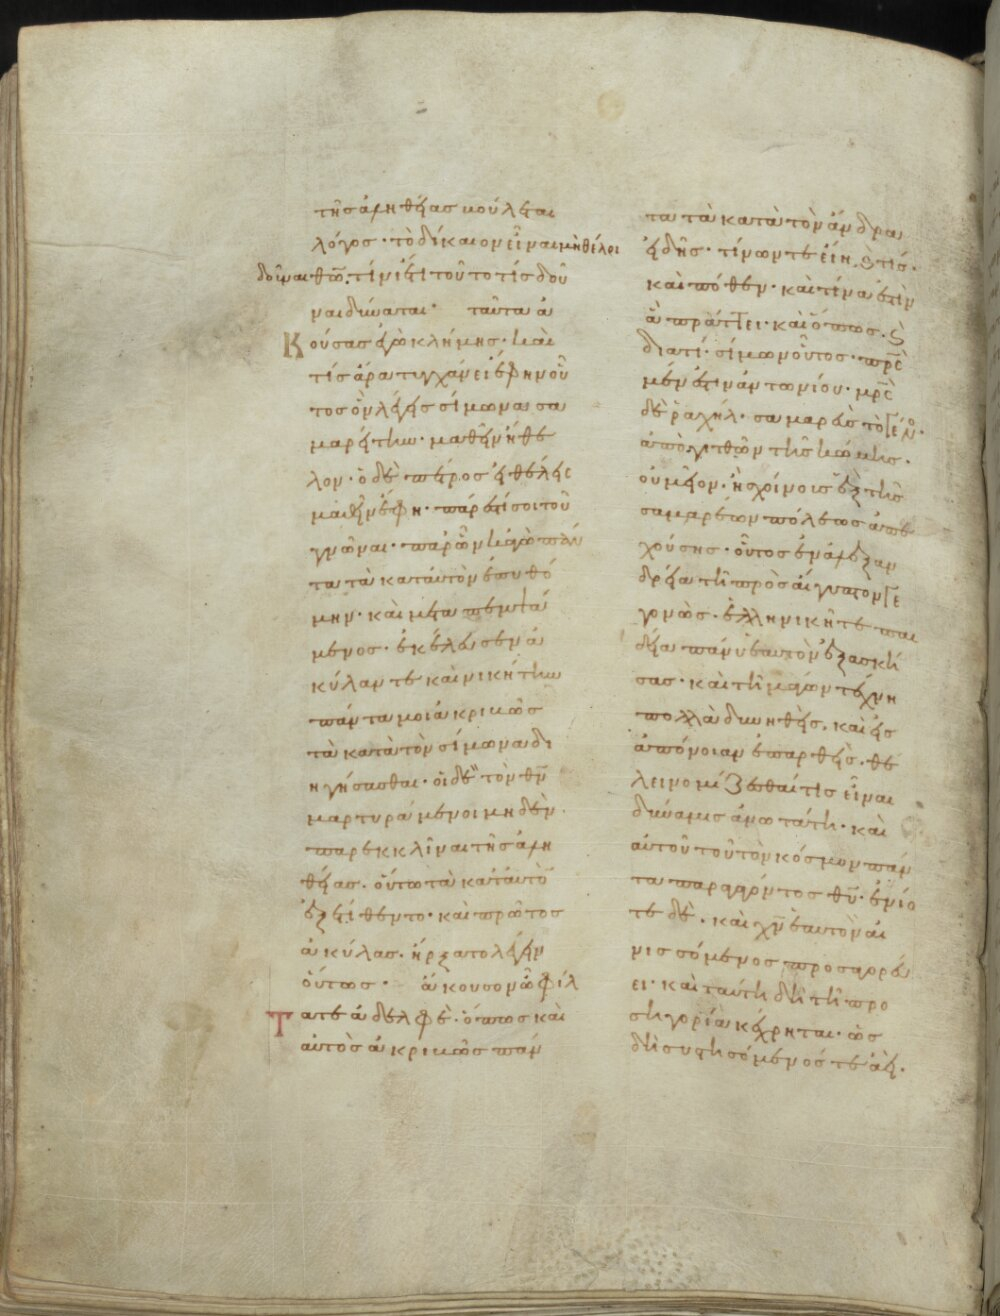 τῆς ἀληθείας βούλεται
λόγος· τὸ δίκαιον εἶναι μὴ θέλει
δοῦναι θῶ. τίνι ἔτι τοῦτό τις δοῦ
ναι δύναται· ταῦτα ἀ
Κούσας ἐγὼ κλήμης· καὶ
τίς ἄρα τυγχάνει ἔφην οὗ
τος ὃν λέγεις σίμωνα σα
μαρείτην· μαθεῖν ἤθε
λον· ὁ δὲ πέτρος εἰ θέλεις
μαθεῖν ἔφη· πάρεστί σοι τοῦ
γνῶναι· παρ' ὧν κἀγὼ πάν
τα τὰ κατ' αὐτὸν ἐπυθό
μην· καὶ μεταπεμψά
μενος· ἐκέλευσεν ἀ
κύλαν τὲ καὶ νικήτην
πάντα μοι ἀκριβῶς
τὰ κατὰ τὸν σίμωνα δι
ηγήσασθαι· οἱ δὲ τὸν θν
μαρτυράμενοι μηδὲν
παρεκκλῖναι τῆς ἀλη
θείας. οὕτω τὰ κατ' αὐτὸν
ἐξετίθεντο· καὶ πρῶτος
ἀκύλας. ἤρξατο λέγειν
οὕτως· ἄκουσον ὦ φίλ
Τατε ἀδελφὲ· ὅπως καὶ
αὐτὸς ἀκριβῶς πάν
τα τὰ κατὰ τὸν ἄνδρα
εἰδῇς· τίνων τε εἴη. καὶ τίς·
καὶ πόθεν· καὶ τίνα ἐστὶν
ἃ πράττει· καὶ ὅπως. καὶ
διατί· σίμων οὗτος· πρς
μέν ἐστιν ἀντωνίου· μρς
δὲ ῥαχήλ· σαμαρεὺς τὸ γένος·
ἀπὸ γιτθῶν τῆς κώμης·
οὐ μεῖον· ἢ σχοίνοις ἓξ τῆς
σαμαρέων πόλεως ἀπε
χούσης· οὗτος ἐν ἀλεξαν
δρείᾳ τῆ πρὸς αἴγυπτον γε
γονὼς· ἑλληνικῆ τε παι
δείᾳ πάνυ ἑαυτὸν ἐξασκή
σας· καὶ τῆ μάγων τέχνη
πολλὰ δυνηθεὶς. καὶ εἰς
ἀπόνοιαν ἐπαρθεὶς· θέ
λει νομίζεσθαί τις εἶναι
δύναμις ἀνωτάτη· καὶ
αὐτοῦ τοῦ τὸν κόσμον πάν
τα παραγαγόντος θυ· ἐνίο
τε δὲ. καὶ χν ἑαυτὸν αἰ
νισσόμενος προσαγορεύ
ει· καὶ ταύτη δὴ τῆ προ
σηγορίᾳ κέχρηται· ὡς
δὴ στησόμενός τε ἀεὶ.